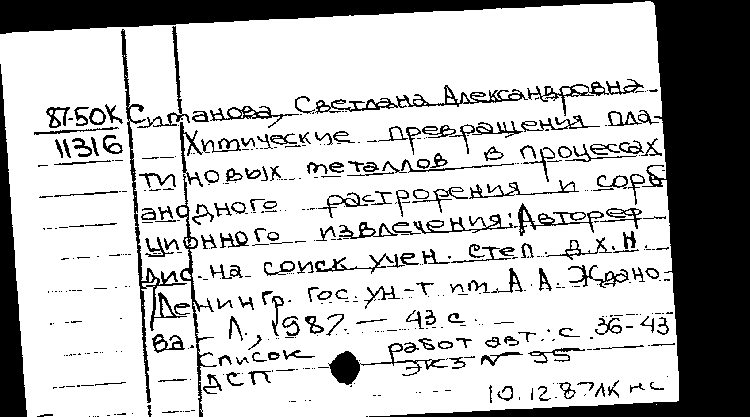 87-50К Ситанова, Светлана Александровна
11316 Химические превращения пла-
тиновых металлов в процессах
анодного растрорения и сорб
ционного извлечения: Автореф
дис. на соиск. учен. степ. д.х.н.
Ленингр. гос. ун-т им. А.А. Ждано-
ва. - Л., 1987. — 43 с.
Список работ авт.: с. 36-43
ДСП экз № 95
10.12.87 ЛК нс